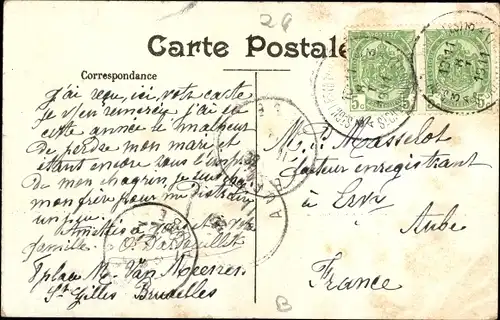 29
Carte Postale
Correspondance
j'ai reçu, ici, votre carte
je vs en remercie, j'ai eu
cette année le malheur
de perdre mon mari et
étant encore sous l'emprise
de mon chagrin, je suis chez
mon frère pour me distraire
un peu.
Amitiés à vous et votre
famille
1 place M. Van Meenen
St Gilles Bruxelles
M. P. Masselot
facteur enregistrant
à Ervy
Aube
France
B